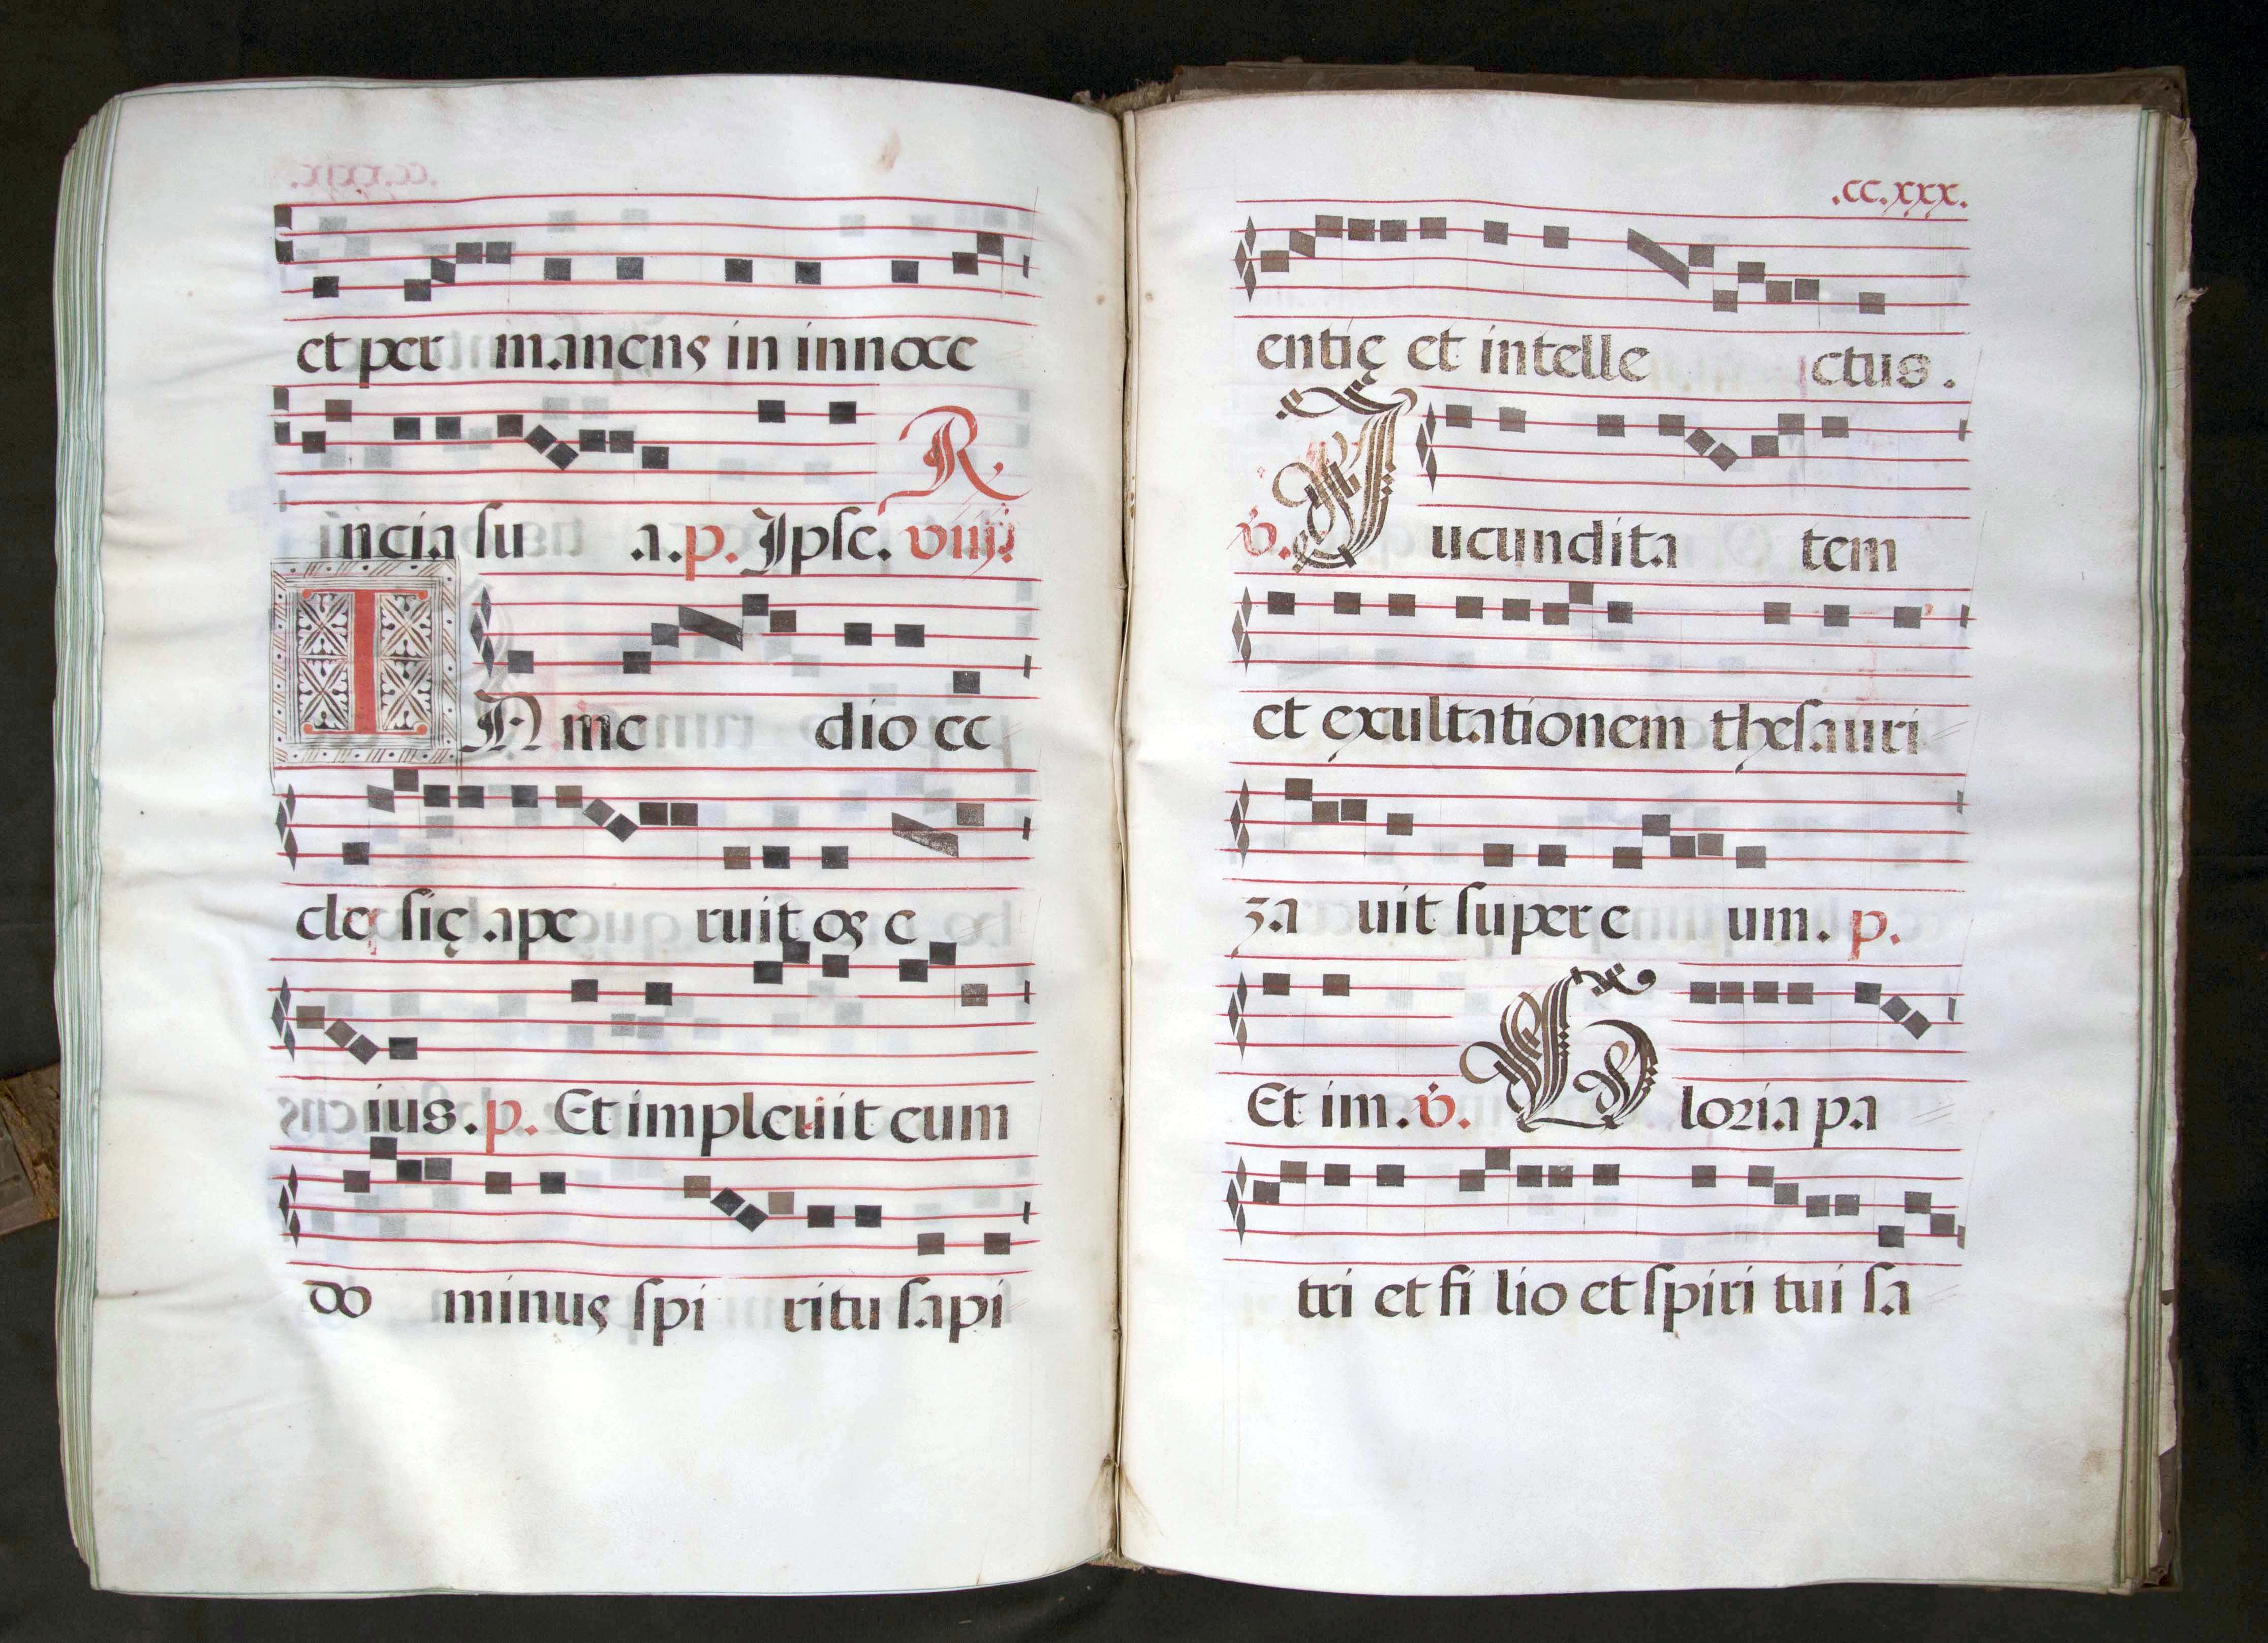 et per manens in innoce
incia su a. p. Ipse. viii.
R
IN me dio ec
cle się ape ruit os e
ius. p. Et impleuit eum
do minus spi ritu sapi
.cc.xxx.
entię et intelle ctus.
v. Iucundita tem
et exultationem thesauri
za uit super e um. p.
Et im. v. Gloria pa
tri et fi lio et spiri tui sa